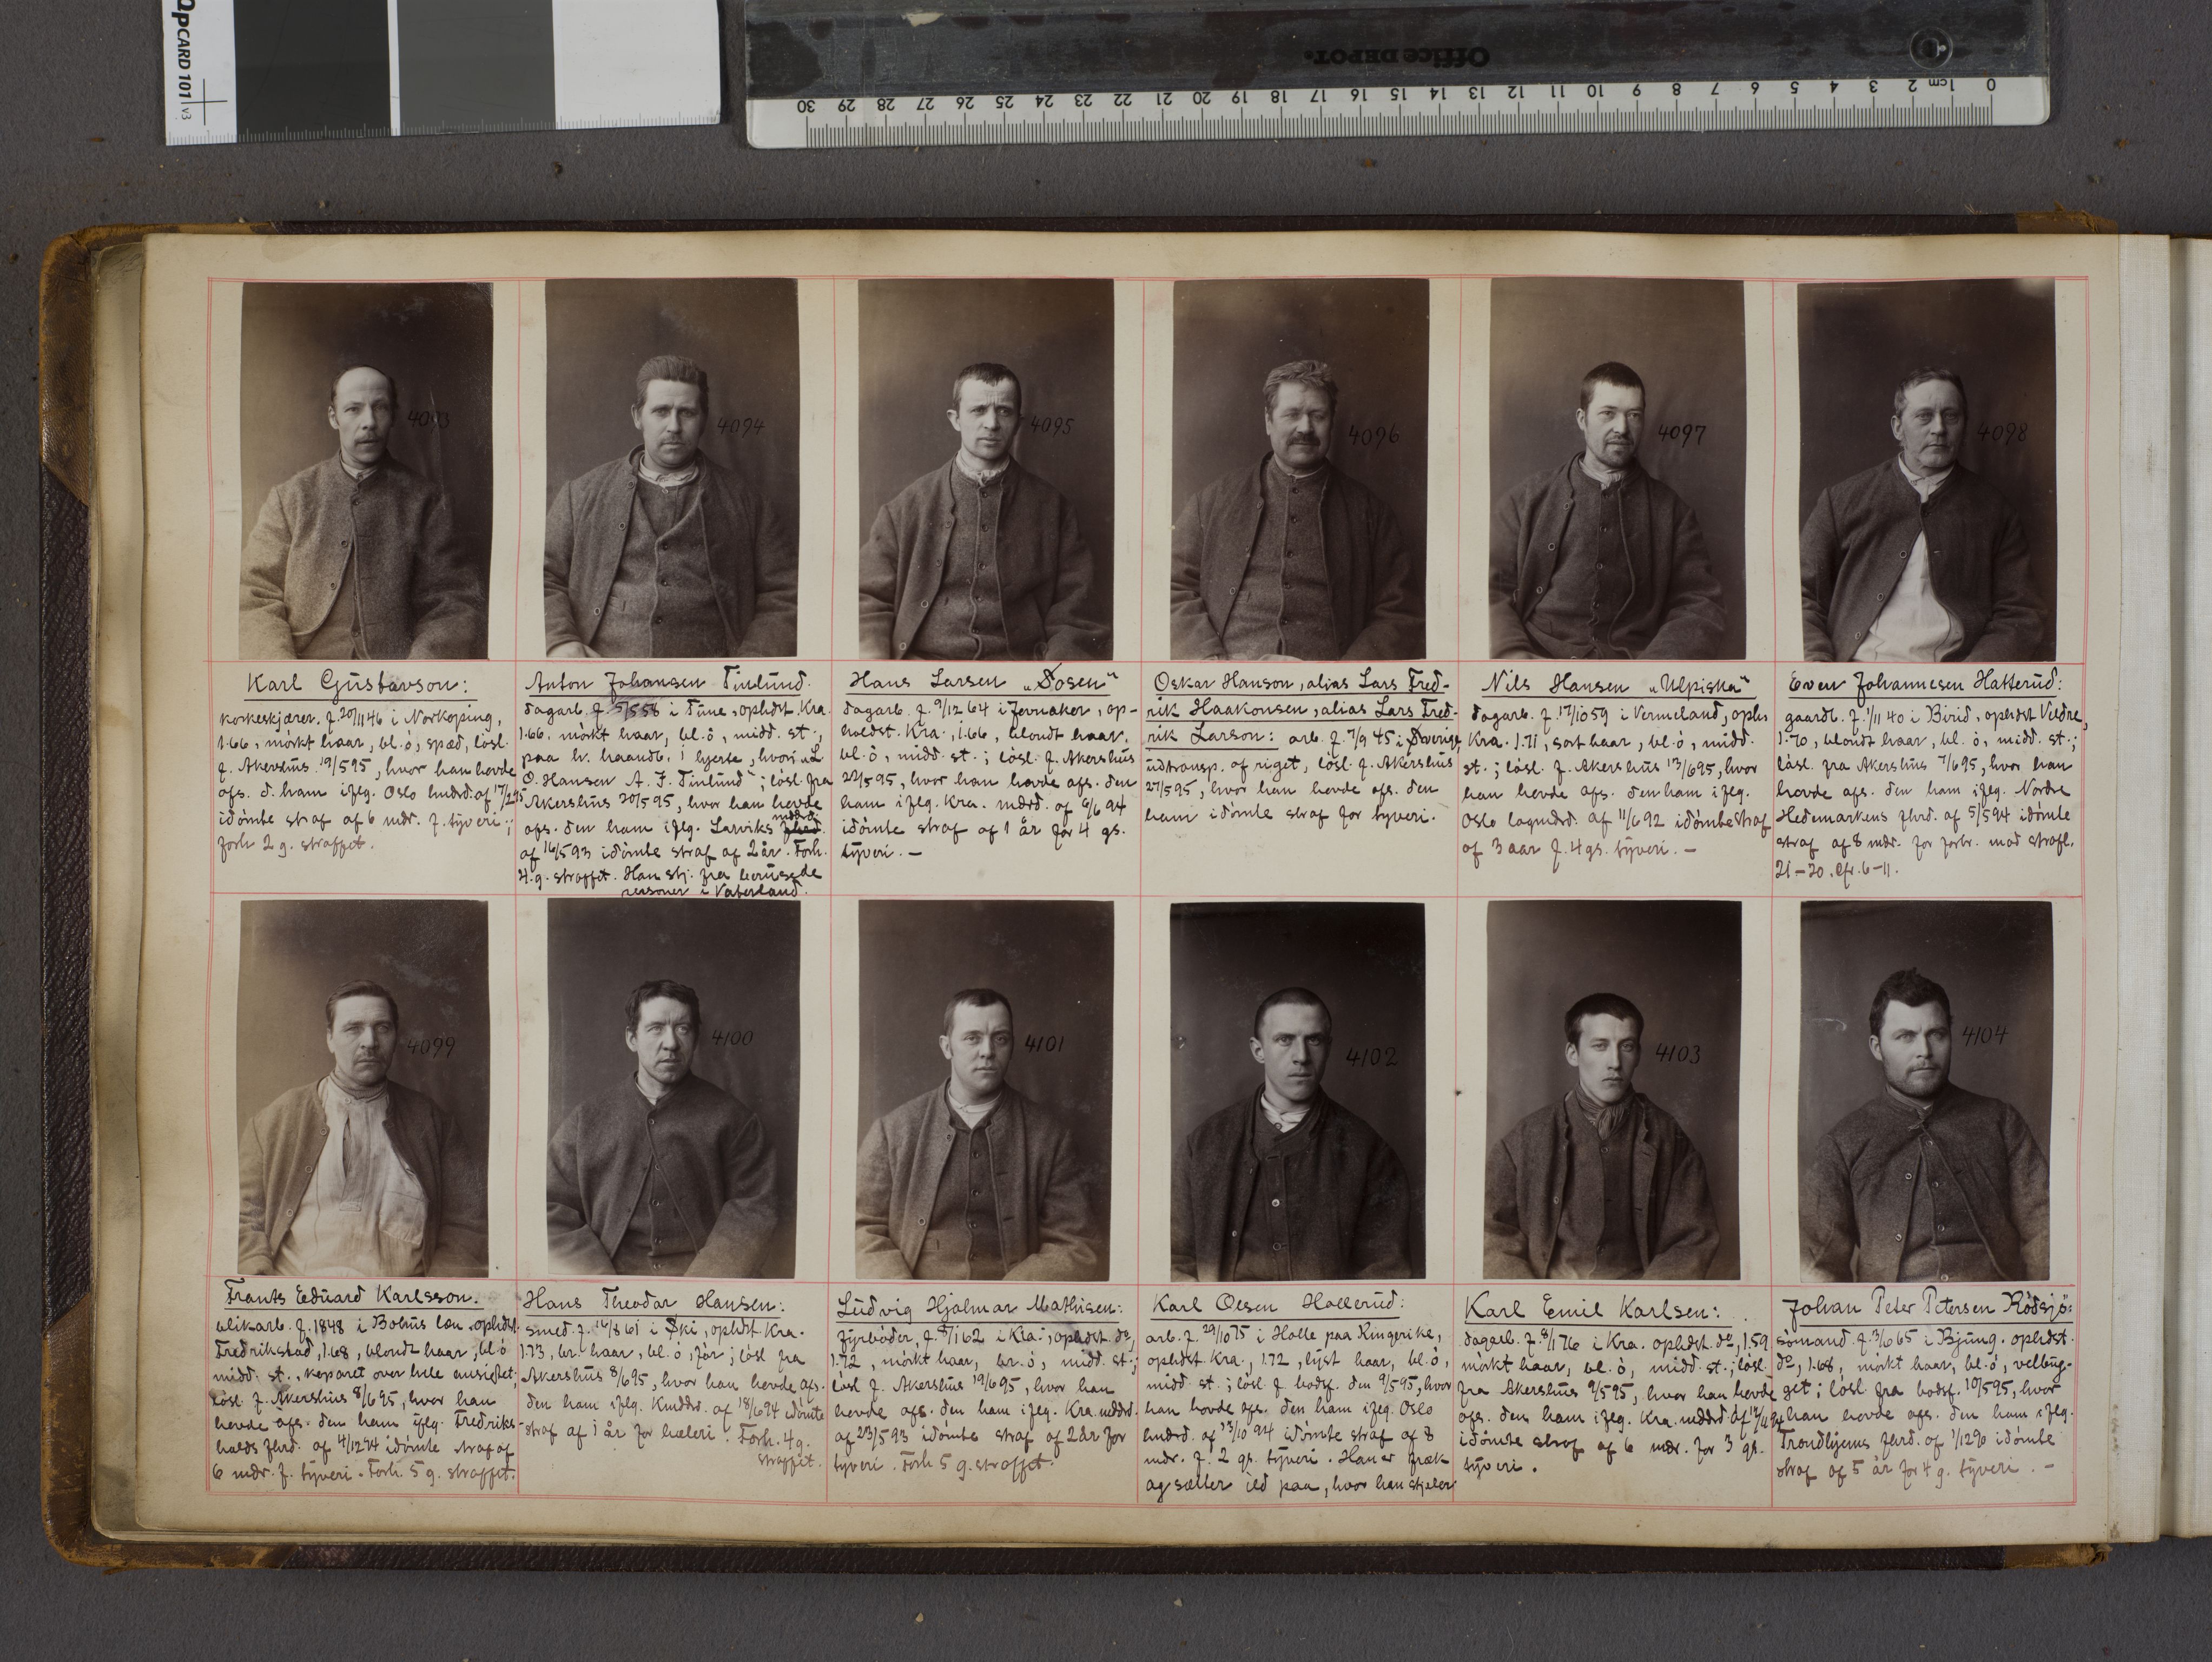 QPCARD 101 v3
Office DEPOT.
30 29 28 27 26 25 24 23 22 21 20 19 18 17 16 15 14 13 12 11 10 9 8 7 6 5 4 3 2 1cm 0
4093
4094
4095
4096
4097
4098
Karl Gustavson:
korkeskjærer. f. 20/11 46 i Norkoping,
1.66, mörkt haar, bl. ö, spæd, lösl.
f. Akershus 19/5 95, hvor han hevde
afs. d. ham iflg. Oslo hmdrd. af 17/1 95
idömte straf af 6 mdr. f. tyveri;
forh 2 g. straffet.
Anton Johansen Tinlund.
dagarb. f. 5/5 58 i Tune, ophdst. Kra.
1.66, mörkt haar, bl. ö, midd. st.,
paa hr. haandb. 1 hjerte, hvori „L
O. Hansen A. J. Tinlund"; lösl. fra
Akershus 20/5 95, hvor han hevde
afs. den ham iflg. Larviks mddrd.
af 16/5 93 idömte straf af 2 år. Forh.
4 g. straffet. Han stj. fra berusede
personer i Vaterland.
Hans Larsen „Dosen"
dagarb. f. 9/12 64 i Jevnaker, op-
holdst. Kra., 1.66, blondt haar,
bl. ö, midd. st.; lösl. f. Akershus
22/5 95, hvor han hevde afs. den
ham iflg. Kra. mdrd. af 6/6 94
idömte straf af 1 år for 4 gs.
tyveri. —
Oskar Hanson, alias Lars Fred-
rik Haakonsen, alias Lars Fred-
rik Larson: arb. f. 7/9 45 i Sverige
udtransp. af riget, lösl. f. Akershus
27/5 95, hvor han hevde afs. den
ham idömte straf for tyveri.
Nils Hansen „Ulpiska"
dagarb. f. 17/10 59 i Vermeland, ophs
Kra. 1.71, sort haar, bl. ö, midd.
st.; lösl. f. Akershus 13/6 95, hvor
han hevde afs. den ham iflg.
Oslo lagmdrd. af 11/6 92 idömte straf
af 3 aar f. 4 gs. tyveri. —
Even Johannesen Hatterud:
gaardb. f. 1/11 40 i Birid, ophdst Veldre,
1.70, blondt haar, bl. ö, midd. st.;
lösl. fra Akershus 7/6 95, hvor han
hevde afs. den ham iflg. Nordre
Hedemarkens fhrd. af 5/5 94 idömte
straf af 8 mdr. for forbr. mod strafl.
21-20. cfr. 6-11.
4099
4100
4101
4102
4103
4104
Frants Eduard Karlsson.
blikarb. f. 1848 i Bohus len, ophdst.
Fredrikstad, 1.68, blondt haar, bl. ö
midd. st., koparet over hele ansigtet;
lösl. f. Akershus 8/6 95, hvor han
hevde afs. den ham iflg. Fredriks-
halds fhrd. af 4/12 94 idömte straf af
6 mdr. f. tyveri. Forh. 5 g. straffet.
Hans Theodor Hansen:
smed. f. 16/8 61 i Ski, ophdst. Kra.
1.73, br. haar, bl. ö, før; lösl fra
Akershus 8/6 95, hvor han hevde afs.
den ham iflg. Kmddrd. af 18/6 94 idömte
straf af 1 år for hæleri. Forh. 4 g.
straffet.
Ludvig Hjalmar Mathisen:
fyrböder, f. 8/1 62 i Kra., ophdst. do,
1.72, mörkt haar, br. ö, midd. st.;
lösl f. Akershus 19/6 95, hvor han
hevde afs. den ham iflg. Kra. mddrd.
af 23/5 93 idömte straf af 2 år for
tyveri. Forh 5 g. straffet.
Karl Olsen Hollerud:
arb. f. 29/10 75 i Holle paa Ringerike,
ophdst Kra., 1.72, lyst haar, bl. ö,
midd. st.; lösl. f. bodsf. den 9/5 95, hvor
han hevde afs. den ham iflg. Oslo
hmdrd. af 23/10 94 idömte straf af 8
mdr. f. 2 gs. tyveri. Han er fræk
og sætter ild paa, hvor han stjeler
Karl Emil Karlsen:
dagarb. f. 8/1 76 i Kra. ophdst. do, 1.59
mörkt haar, bl. ö, midd. st.; lösl.
fra Akershus 9/5 95, hvor han hevde
afs. den ham iflg. Kra. mddrd af 12/11 94
idömte straf af 6 mdr. for 3 gs.
tyveri.
Johan Peter Petersen Rödsjö:
sömand. f. 3/6 65 i Bjung. ophdst.
do, 1.68, mörkt haar, bl. ö, velbyg-
get; lösl. fra bodsf. 10/5 95, hvor
han hevde afs. den ham iflg.
Trondhjems fhrd. af 1/12 90 idömte
straf af 5 år for 4 g. tyveri. —